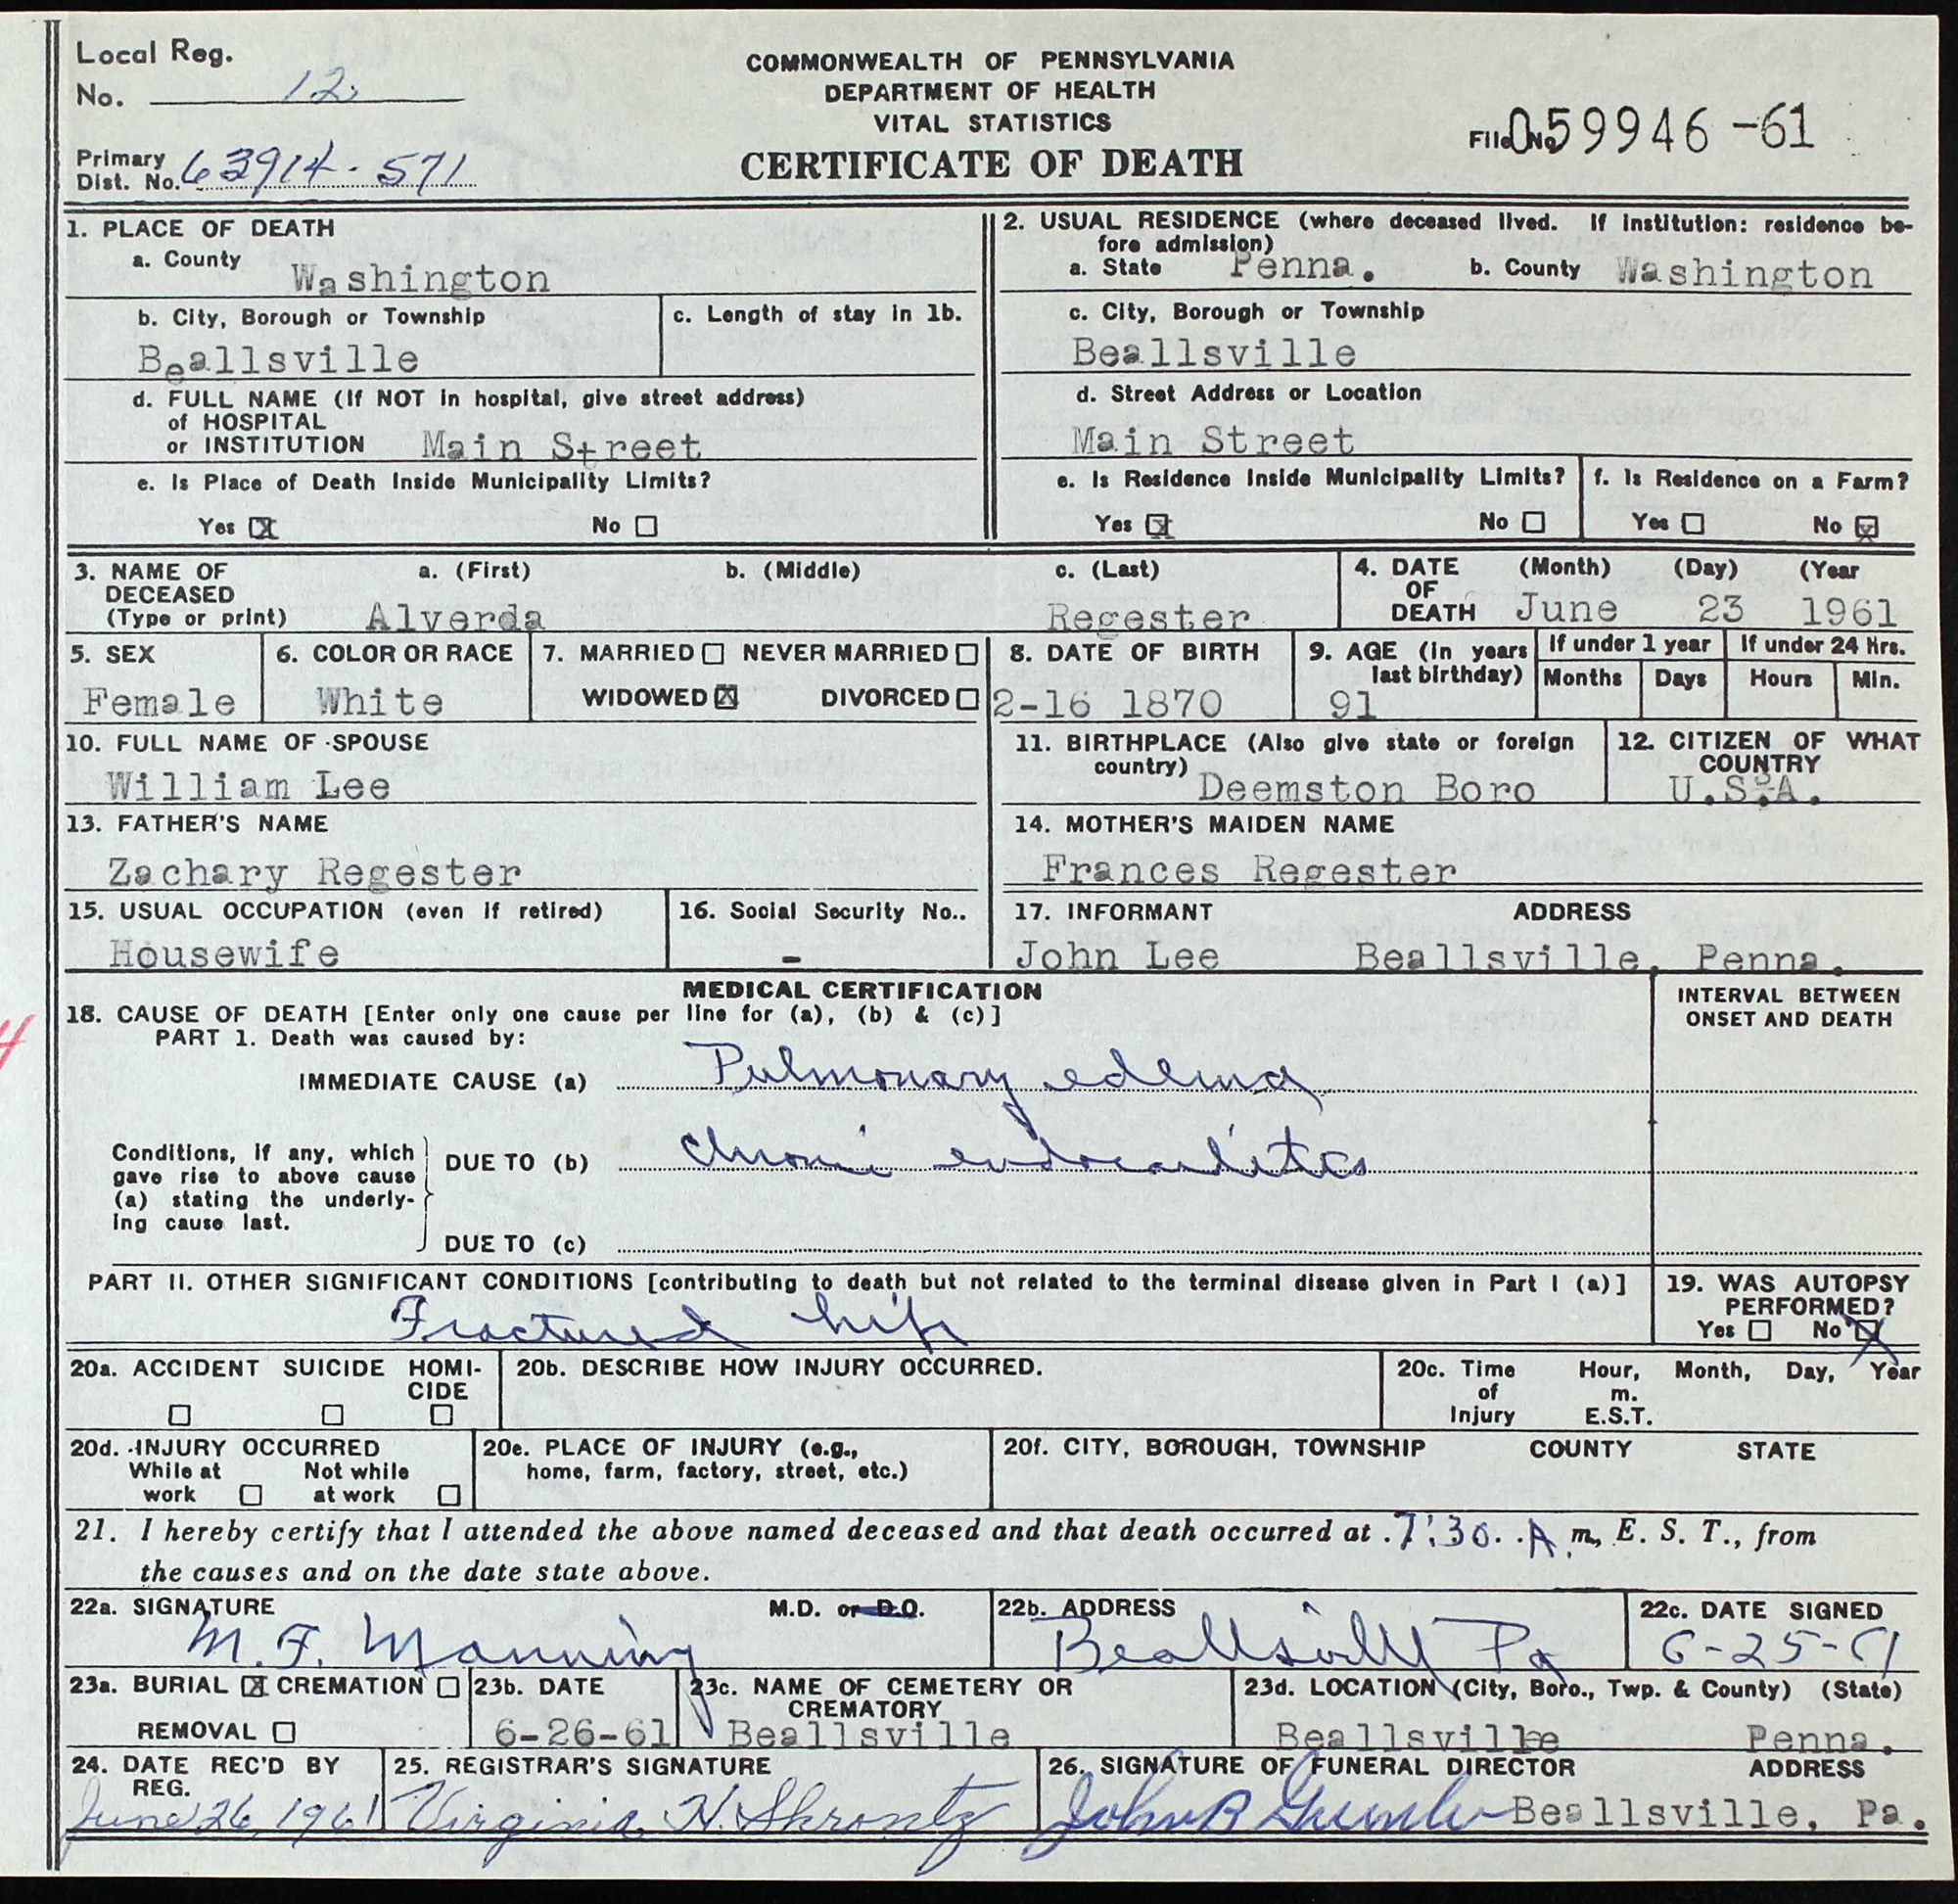 Local Reg.
No. 12
COMMONWEALTH OF PENNSYLVANIA
DEPARTMENT OF HEALTH
VITAL STATISTICS
CERTIFICATE OF DEATH
File No. 059946-61
Primary
Dist. No. 63914-571
1. PLACE OF DEATH
a. County
Washington
b. City, Borough or Township
Beallsville
c. Length of stay in 1b.
d. FULL NAME (If NOT in hospital, give street address)
of HOSPITAL
or INSTITUTION Main Street
e. Is Place of Death Inside Municipality Limits?
Yes ☒ No ☐
2. USUAL RESIDENCE (where deceased lived. If institution: residence be-
fore admission)
a. State Penna. b. County Washington
c. City, Borough or Township
Beallsville
d. Street Address or Location
Main Street
e. Is Residence Inside Municipality Limits?
Yes ☒ No ☐
f. Is Residence on a Farm?
Yes ☐ No ☒
3. NAME OF DECEASED
(Type or print)
a. (First) b. (Middle) c. (Last)
Alverda Regester
4. DATE OF DEATH
(Month) (Day) (Year
June 23 1961
5. SEX
Female
6. COLOR OR RACE
White
7. MARRIED ☐ NEVER MARRIED ☐
WIDOWED ☒ DIVORCED ☐
8. DATE OF BIRTH
2-16 1870
9. AGE (in years
last birthday)
91
If under 1 year
Months Days
If under 24 hrs.
Hours Min.
10. FULL NAME OF SPOUSE
William Lee
11. BIRTHPLACE (Also give state or foreign
country)
Deemston Boro
12. CITIZEN OF WHAT
COUNTRY
U.S.A.
13. FATHER'S NAME
Zachary Regester
14. MOTHER'S MAIDEN NAME
Frances Regester
15. USUAL OCCUPATION (even if retired)
Housewife
16. Social Security No..
-
17. INFORMANT ADDRESS
John Lee Beallsville, Penna.
MEDICAL CERTIFICATION
18. CAUSE OF DEATH [Enter only one cause per line for (a), (b) & (c)]
PART 1. Death was caused by:
INTERVAL BETWEEN
ONSET AND DEATH
IMMEDIATE CAUSE (a) Pulmonary edema
Conditions, if any, which
gave rise to above cause
(a) stating the underly-
ing cause last.
DUE TO (b) chronic endocarditis
DUE TO (c)
PART II. OTHER SIGNIFICANT CONDITIONS [contributing to death but not related to the terminal disease given in Part I (a)]
Fractured hip
19. WAS AUTOPSY
PERFORMED?
Yes ☐ No ☒
20a. ACCIDENT SUICIDE HOMI-
CIDE
☐ ☐ ☐
20b. DESCRIBE HOW INJURY OCCURRED.
20c. Time Hour, Month, Day, Year
of m.
Injury E.S.T.
20d. INJURY OCCURRED
While at Not while
work ☐ at work ☐
20e. PLACE OF INJURY (e.g.,
home, farm, factory, street, etc.)
20f. CITY, BOROUGH, TOWNSHIP COUNTY STATE
21. I hereby certify that I attended the above named deceased and that death occurred at 7:30 A m., E. S. T., from
the causes and on the date state above.
22a. SIGNATURE M.D. or D.O.
M. F. Manning
22b. ADDRESS
Beallsville Pa
22c. DATE SIGNED
6-25-61
23a. BURIAL ☒ CREMATION ☐
REMOVAL ☐
23b. DATE
6-26-61
23c. NAME OF CEMETERY OR
CREMATORY
Beallsville
23d. LOCATION (City, Boro., Twp. & County) (State)
Beallsville Penna.
24. DATE REC'D BY
REG.
June 26, 1961
25. REGISTRAR'S SIGNATURE
Virginia N. Shrontz
26. SIGNATURE OF FUNERAL DIRECTOR ADDRESS
John B Beallsville, Pa.